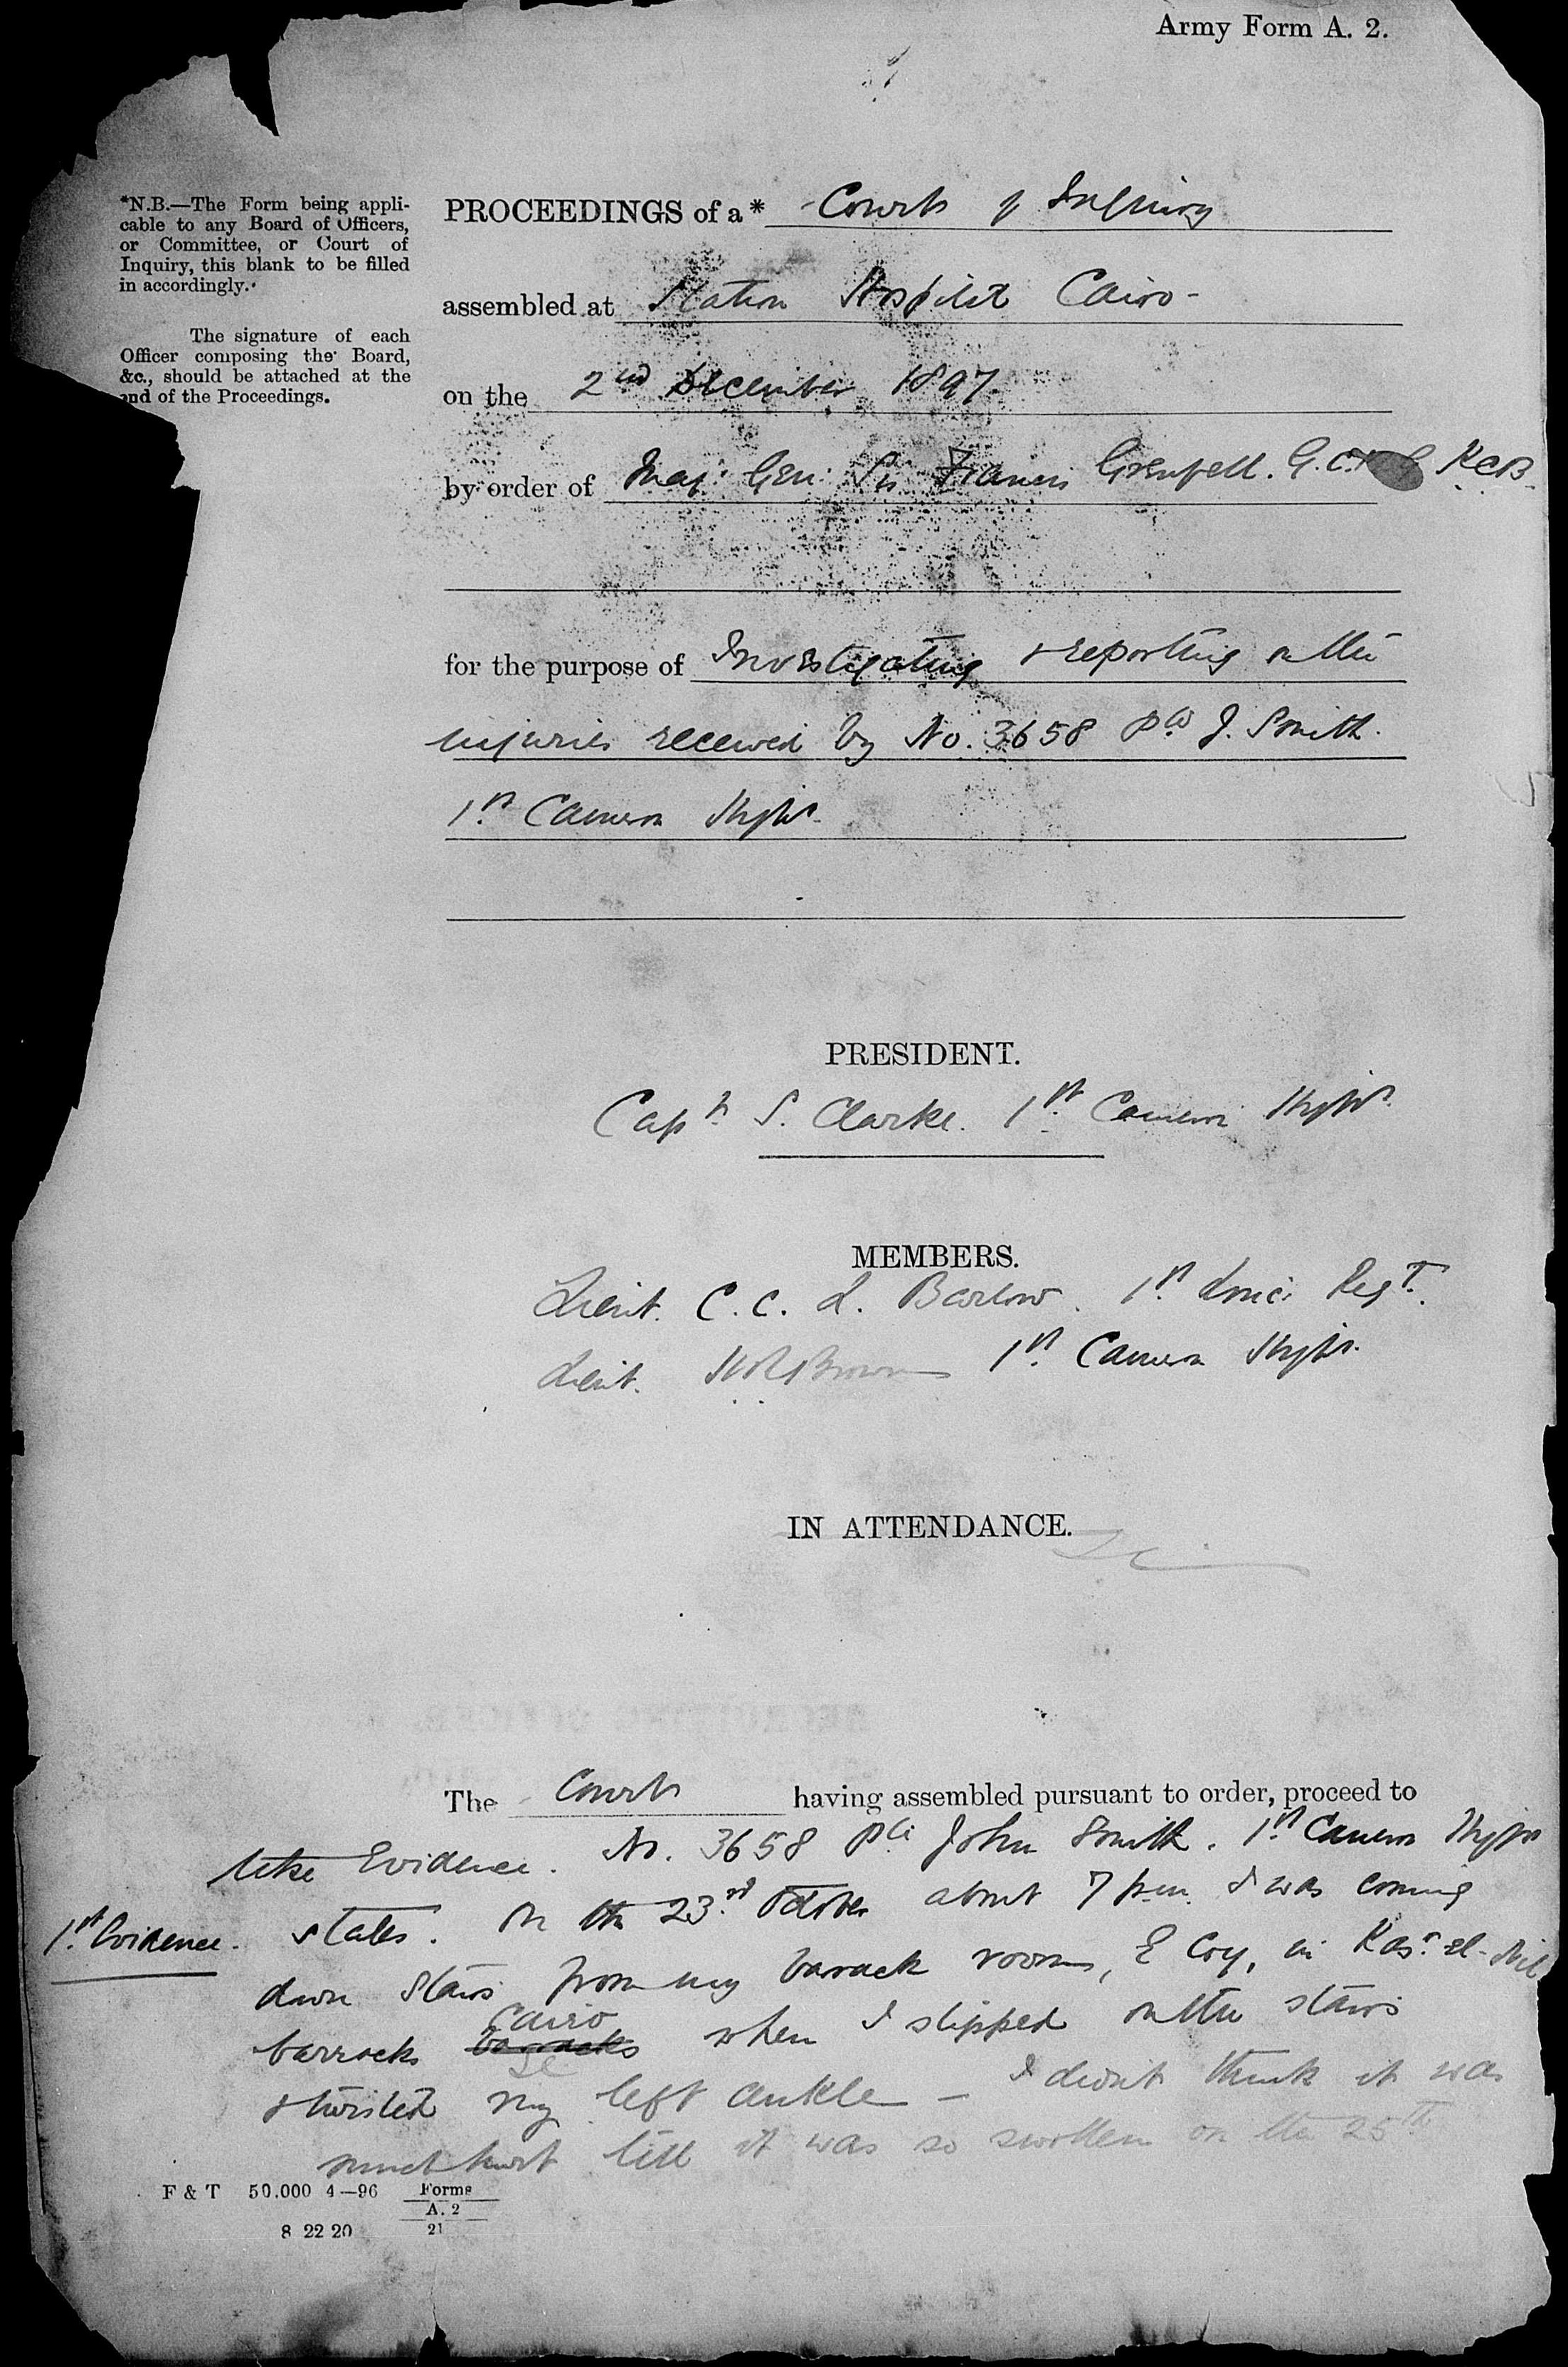 Army Form A. 2.
*N.B.—The Form being appli-
cable to any Board of Officers,
or Committee, or Court of
Inquiry, this blank to be filled
in accordingly.
The signature of each
Officer composing the Board,
&c., should be attached at the
end of the Proceedings.
PROCEEDINGS of a* Court of Inquiry
assembled at Station Hospital Cairo -
on the 2nd December 1897.
by order of Maj. Gen. Sir Francis Grenfell. G.C.M.G K.C.B.
for the purpose of Investigating & reporting on the
injuries received by No. 3658 Pte J. Smith.
1st Cameron Highrs.
PRESIDENT.
Capt. S. Clarke. 1st Cameron Highrs.
MEMBERS.
Lieut. C. C. L. Barlow. 1st Linc: Regt.
Lieut. Brown 1st Cameron Highrs.
IN ATTENDANCE.
The Court having assembled pursuant to order, proceed to
take Evidence. No. 3658 Pte John Smith. 1st Cameron Highrs
1st Evidence. states. On the 23rd October about 7 p.m. I was coming
down stairs from my barrack room, E Coy, in Kasr-el-Nil
barracks Cairo barracks when I slipped on the stairs
& twisted my left ankle — I didn't think it was
SC
much hurt till it was so swollen on the 25th
F & T 50,000 4—96 Forms
A. 2
8 22 20 21